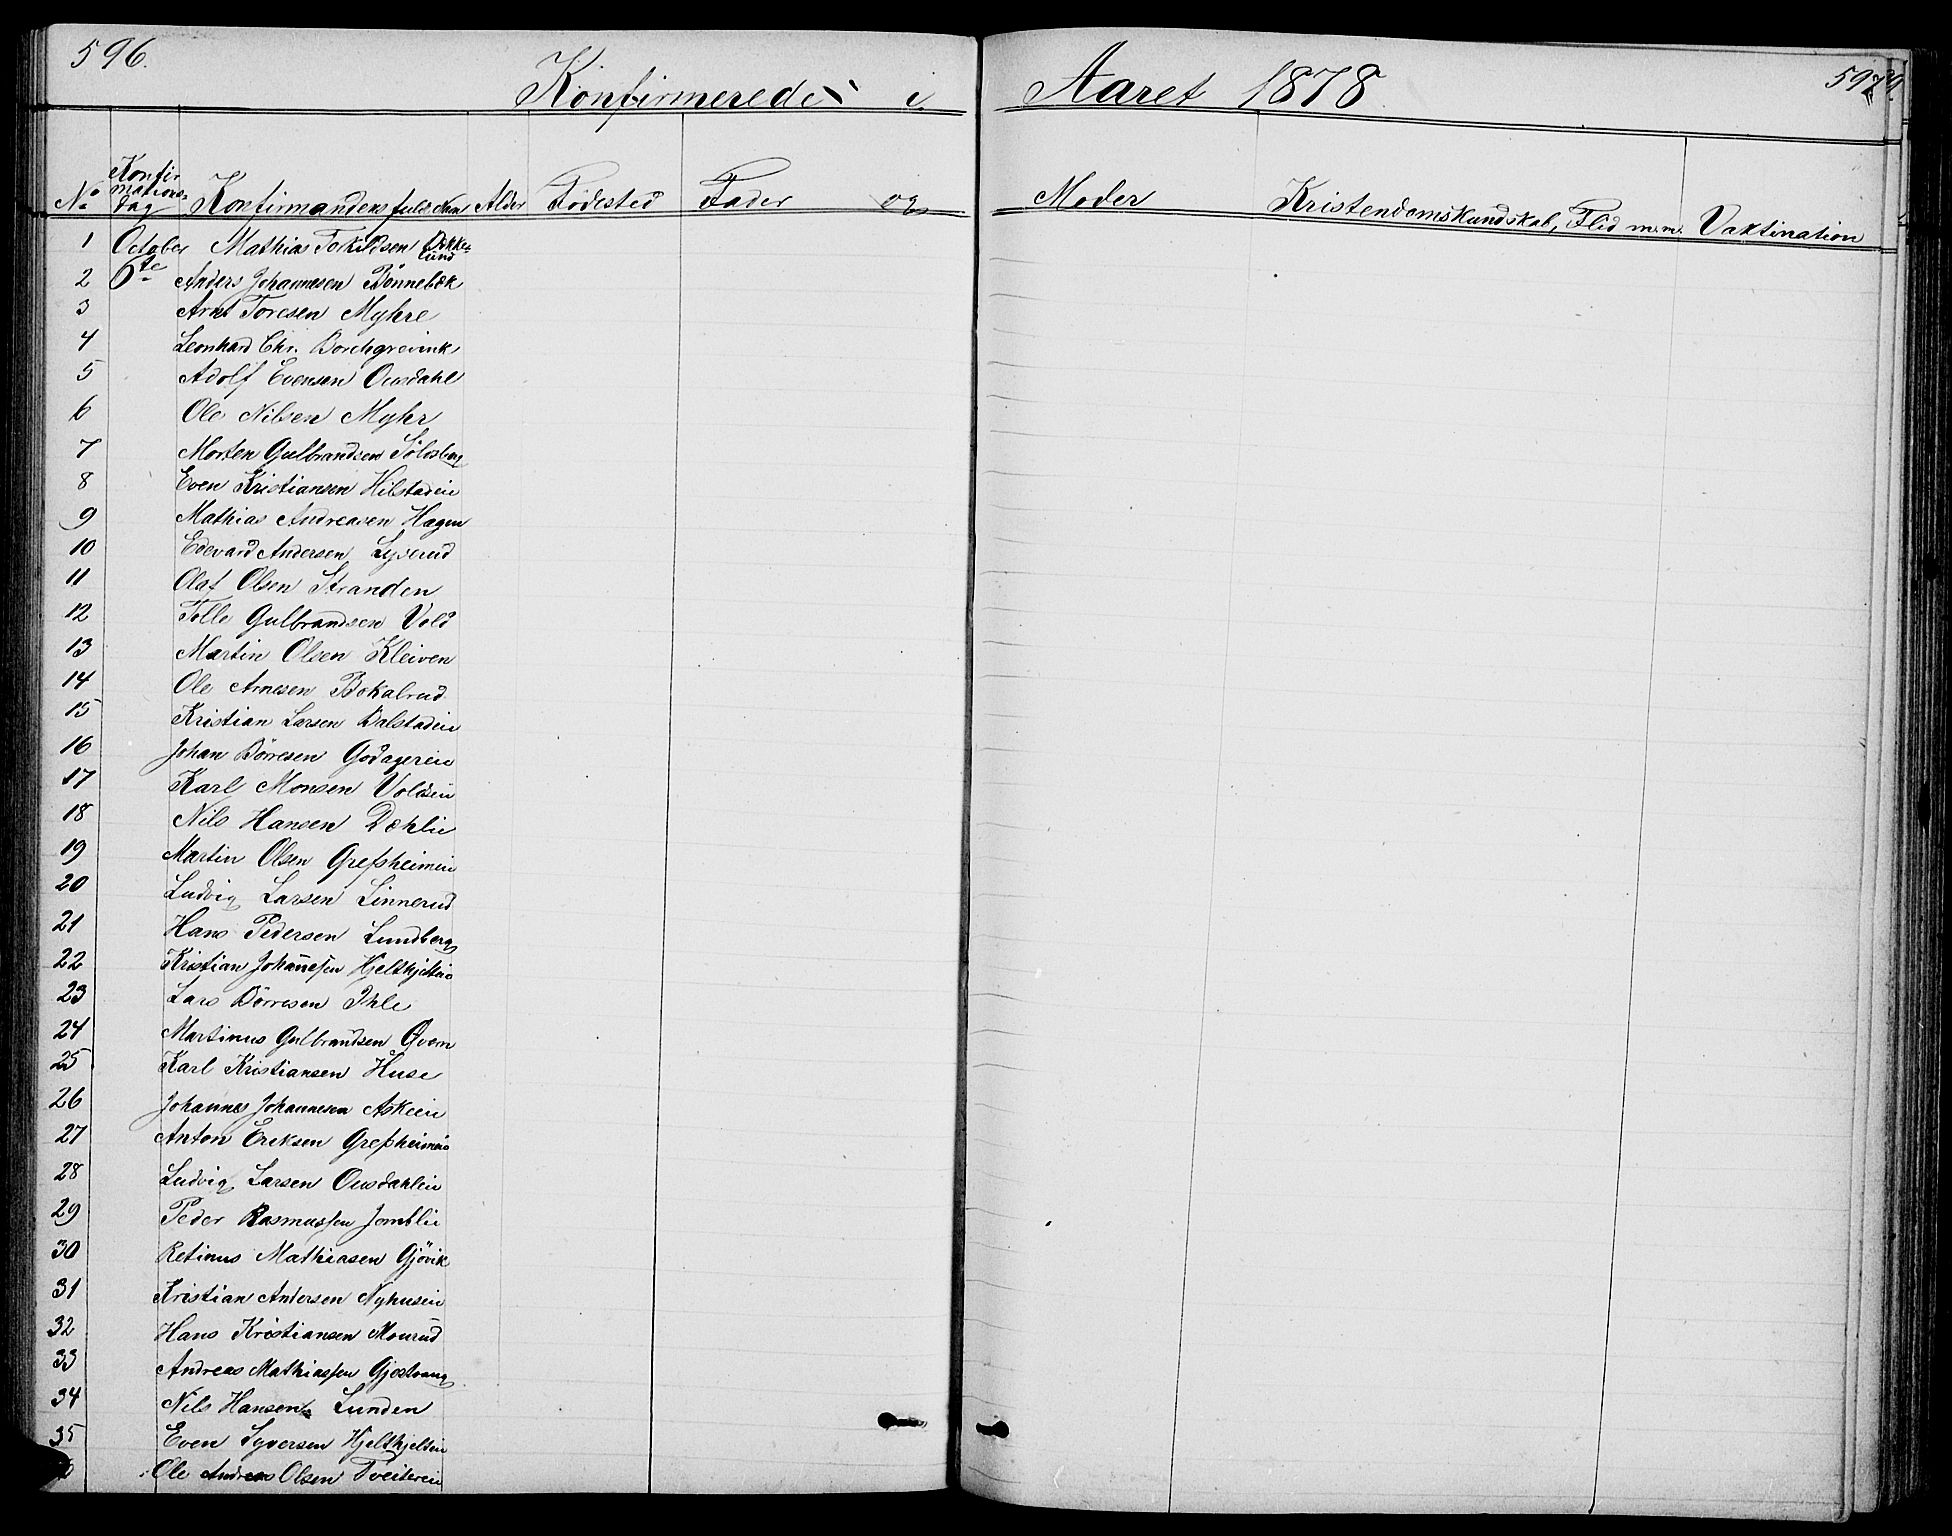 596.
Konfirmerede i Aaret 1878.
597
No Konfirmations-dag Konfirmandens fulde Navn Alder Fødested Fader og Moder Kristendomskundskab, Flid m.m. Vaktination
1 October Mathias Torkildsen Dokkelund
2 6te Anders Johannesen Bönnebæk
3 Arnt Toresen Myhre
4 Leonhard Chr. Borchgrevink
5 Adolf Evensen Ousdahl
6 Ole Nilsen Myhr
7 Morten Gulbrandsen Sölvsberg
8 Even Kristiansen Hilstadeie
9 Mathias Andreasen Hagen
10 Edevard Andersen Lyserud
11 Olaf Olsen Stranden
12 Tolle Gulbrandsen Vold
13 Martin Olsen Kleiven
14 Ole Arnesen Bokalrud
15 Kristian Larsen Balstadeie
16 Johan Börresen Godagereie
17 Karl Monsen Voldeie
18 Nils Hansen Dæhlie
19 Martin Olsen Grefsheimeie
20 Ludvig Larsen Linnerud
21 Hans Pedersen Lundberg
22 Kristian Johannesen Hjeltkjelteie
23 Lars Börresen Ihle
24 Martinus Gulbrandsen Övern
25 Karl Kristiansen Huse
26 Johannes Johannesen Askeie
27 Anton Eriksen Grefsheimeie
28 Ludvig Larsen Ousdahleie
29 Peder Rasmussen Jemblie
30 Retinus Mathiasen Gjövik
31 Kristian Andersen Nyhuseie
32 Hans Kristiansen Mourud
33 Andreas Mathiassen Gjestvang
34 Nils Hansen Lunden
35 Even Syversen Hjeltkjelteie
Ole Andreas Olsen Tveitereie